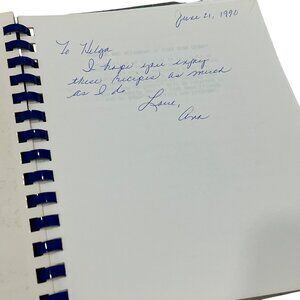 June 21, 1990
To Helga
I hope you enjoy
these recipes as much
as I do.
Love,
Ana